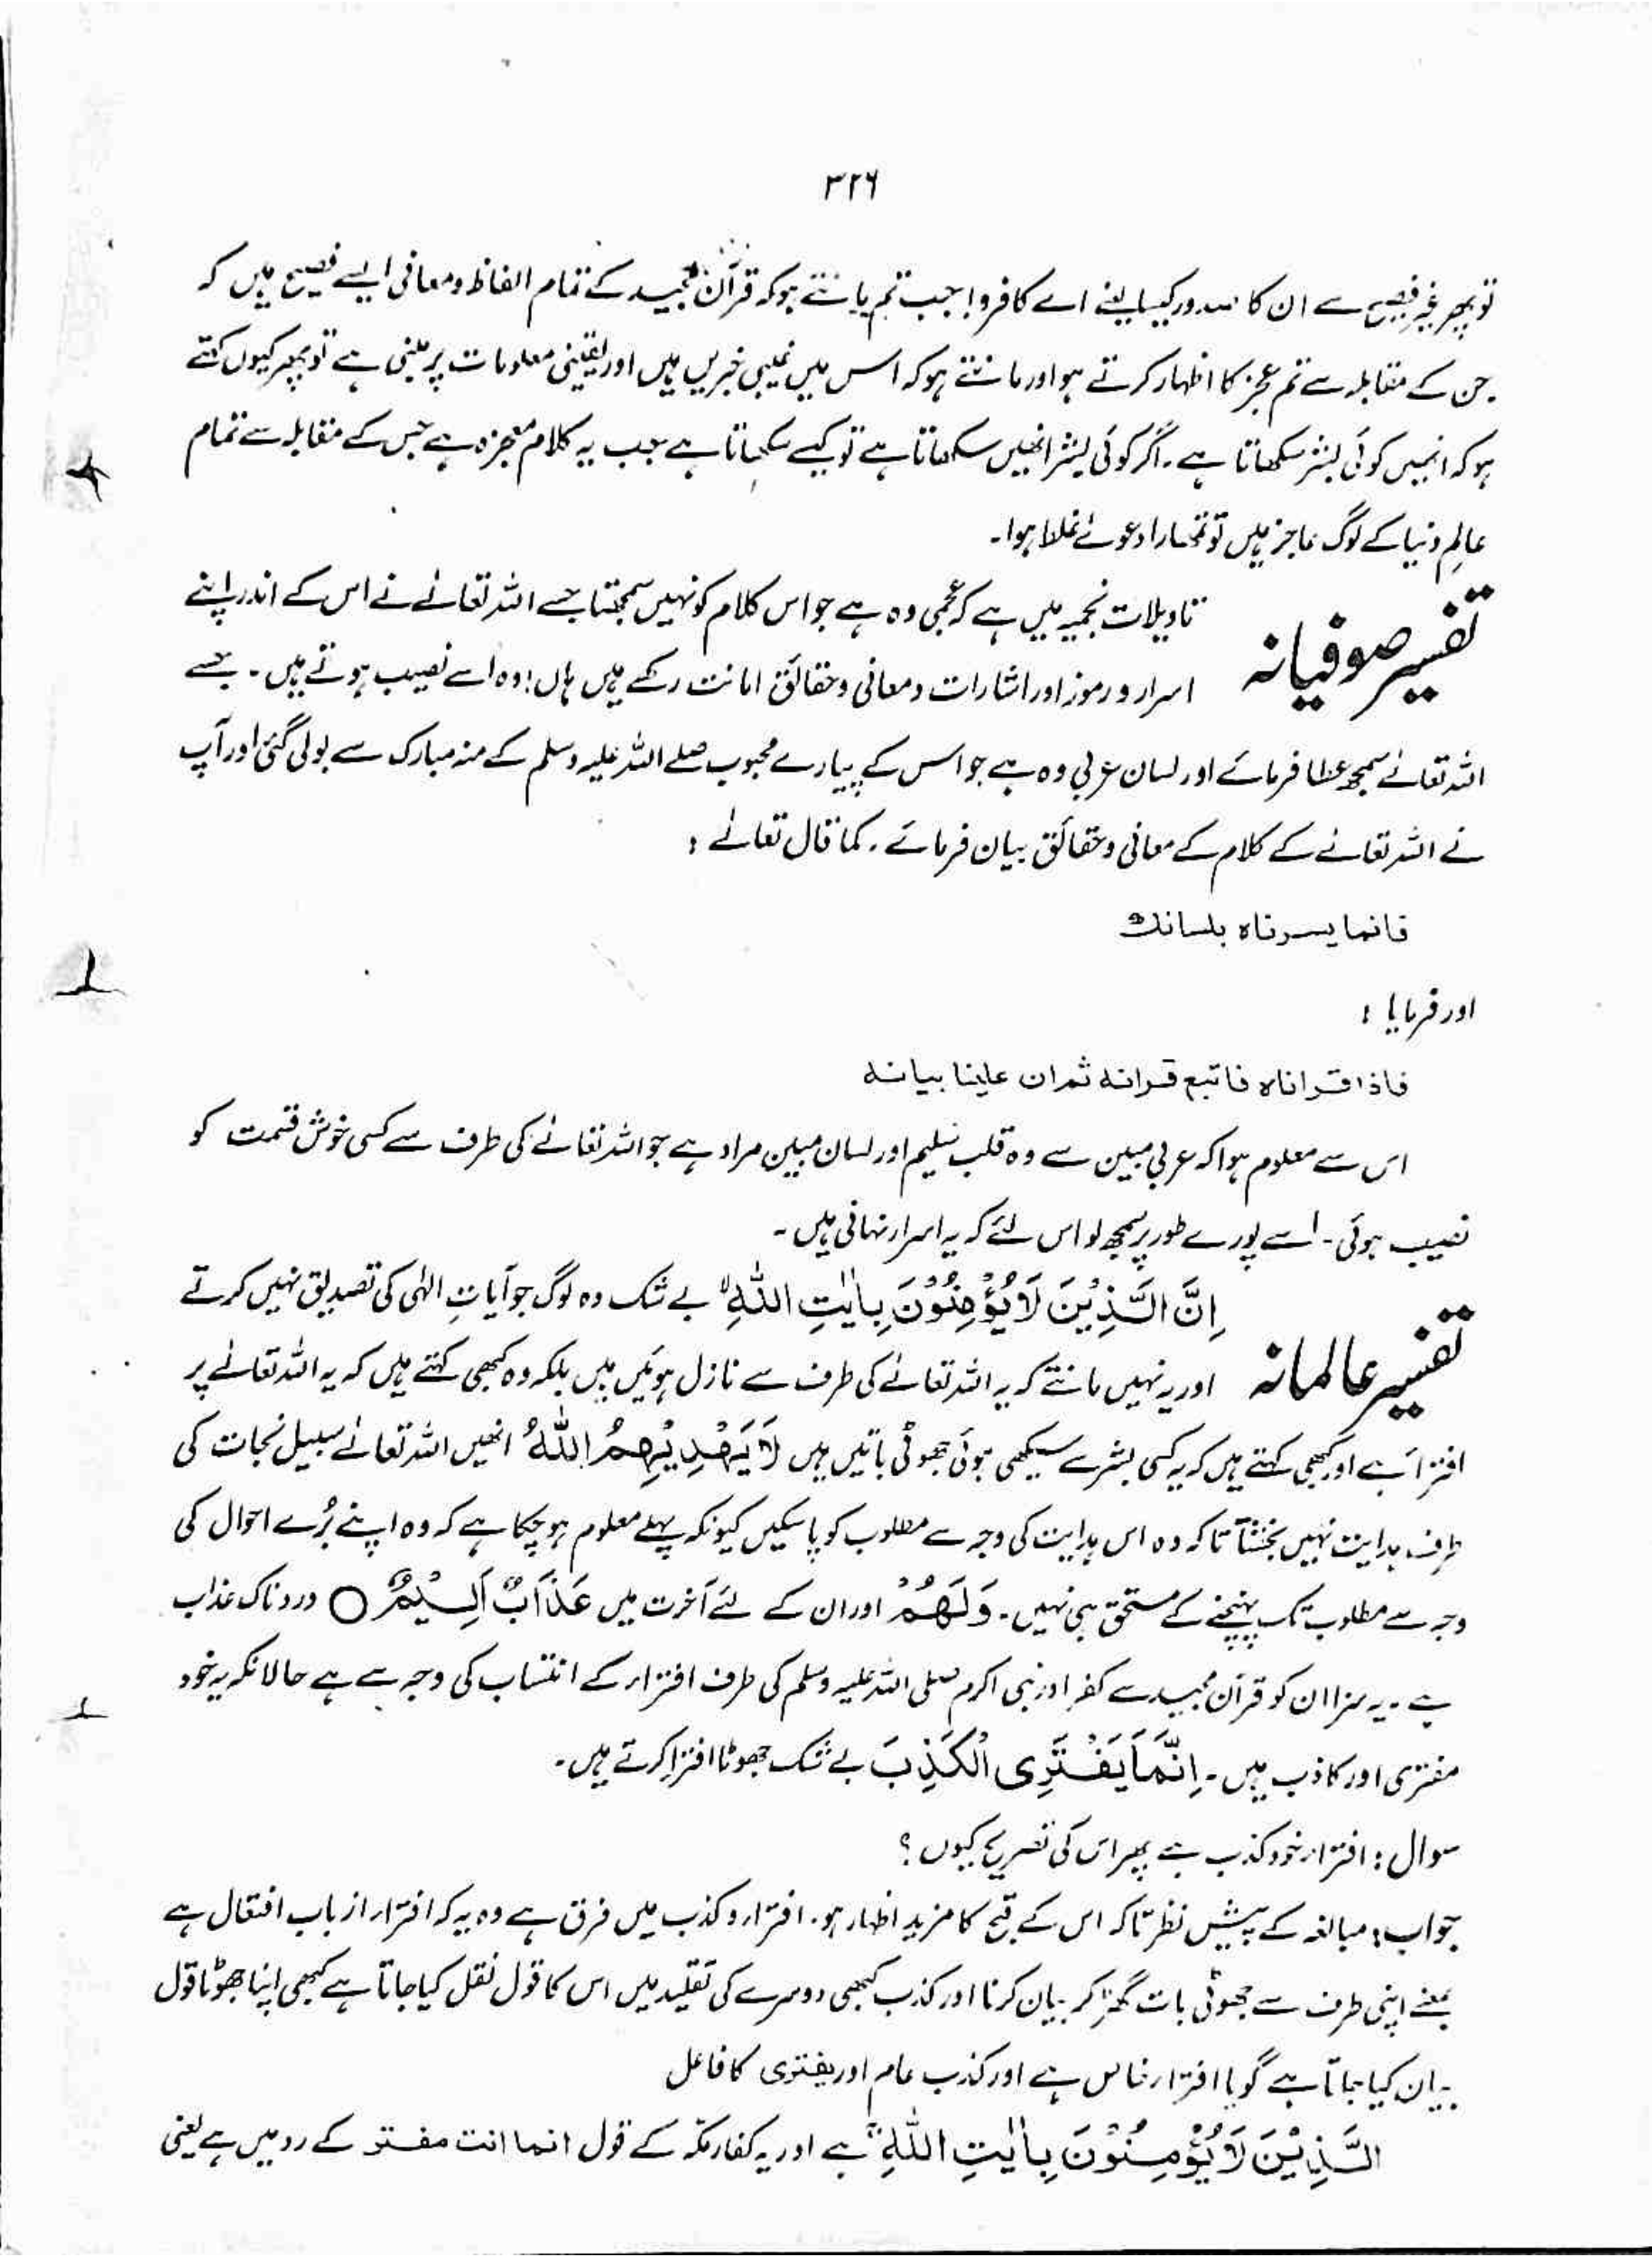 ۳۲۶
تو پھر غیر فصیح سے ان کا صدور کیسا یعنے اے کافرو! جب تم جانتے ہو کہ قرآن مجید کے تمام الفاظ و معانی ایسے فصیح ہیں کہ
جن کے مقابلہ سے تم عجز کا اظہار کرتے ہو اور مانتے ہو کہ اس میں غیبی خبریں ہیں اور یقینی معلومات پر مبنی ہے تو پھر کیوں کہتے
ہو کہ انہیں کوئی بشر سکھاتا ہے۔ اگر کوئی بشر انھیں سکھاتا ہے تو کیسے سکھاتا ہے جب یہ کلام معجزہ ہے جس کے مقابلہ سے تمام
عالمِ دنیا کے لوگ عاجز ہیں تو تمھارا دعوےٰ غلط ہوا۔
تفسیر صوفیانہ
تاویلات نجمیہ میں ہے کہ عجمی وہ ہے جو اس کلام کو نہیں سمجھتا جسے اللہ تعالےٰ نے اس کے اندر اپنے
اسرار و رموز اور اشارات و معانی و حقائق امانت رکھے ہیں ہاں! وہ اسے نصیب ہوتے ہیں۔ جسے
اللہ تعالےٰ سمجھ عطا فرمائے اور لسان عربی وہ ہے جو اس کے پیارے محبوب صلے اللہ علیہ وسلم کے منہ مبارک سے بولی گئی اور آپ
نے اللہ تعالےٰ کے کلام کے معانی و حقائق بیان فرمائے۔ کما قال تعالےٰ :
فانما یسرناہ بلسانك
اور فرمایا :
فاذا قراناہ فاتبع قرانہ ثمران علینا بیانہ
اس سے معلوم ہوا کہ عربی مبین سے وہ قلب سلیم اور لسان مبین مراد ہے جو اللہ تعالےٰ کی طرف سے کسی خوش قسمت کو
نصیب ہوئی۔ اسے پورے طور پر سمجھ لو اس لئے کہ یہ اسرار نہانی ہیں۔
تفسیر عالمانہ
اِنَّ الَّذِيْنَ لَا يُؤْمِنُوْنَ بِاٰيٰتِ اللّٰهِ ۙ بے شک وہ لوگ جو آیاتِ الٰہی کی تصدیق نہیں کرتے
اور یہ نہیں مانتے کہ یہ اللہ تعالےٰ کی طرف سے نازل ہوئیں ہیں بلکہ وہ کبھی کہتے ہیں کہ یہ اللہ تعالےٰ پر
افترا ہے اور کبھی کہتے ہیں کہ یہ کسی بشر سے سیکھی ہوئی جھوٹی باتیں ہیں لَا يَهْدِيْهِمُ اللّٰهُ انھیں اللہ تعالےٰ سبیل نجات کی
طرف ہدایت نہیں بخشتا تاکہ وہ اس ہدایت کی وجہ سے مطلوب کو پا سکیں کیونکہ پہلے معلوم ہو چکا ہے کہ وہ اپنے بُرے احوال کی
وجہ سے مطلوب تک پہنچنے کے مستحق ہی نہیں۔ وَلَهُمْ اور ان کے لئے آخرت میں عَذَابٌ اَلِيْمٌ ○ دردناک عذاب
ہے۔ یہ سزا ان کو قرآن مجید سے کفر اور نبی اکرم صلی اللہ علیہ وسلم کی طرف افتراء کے انتساب کی وجہ سے ہے حالانکہ یہ خود
مفتری اور کاذب ہیں۔ اِنَّمَا يَفْتَرِى الْكَذِبَ بے شک جھوٹا افترا کرتے ہیں۔
سوال : افتراء خود کذب ہے پھر اس کی تصریح کیوں ؟
جواب : مبالغہ کے پیش نظر تاکہ اس کے قبح کا مزید اظہار ہو۔ افتراء و کذب میں فرق ہے وہ یہ کہ افتراء از باب افتعال ہے
بمعنے اپنی طرف سے جھوٹی بات گھڑ کر بیان کرنا اور کذب کبھی دوسرے کی تقلید میں اس کا قول نقل کیا جاتا ہے کبھی اپنا جھوٹا قول
بیان کیا جاتا ہے گویا افتراء خاص ہے اور کذب عام اور یفتری کا فاعل
الَّذِيْنَ لَا يُؤْمِنُوْنَ بِاٰيٰتِ اللّٰهِ ۚ ہے اور یہ کفار مکہ کے قول انما انت مفتر کے رد میں ہے یعنی